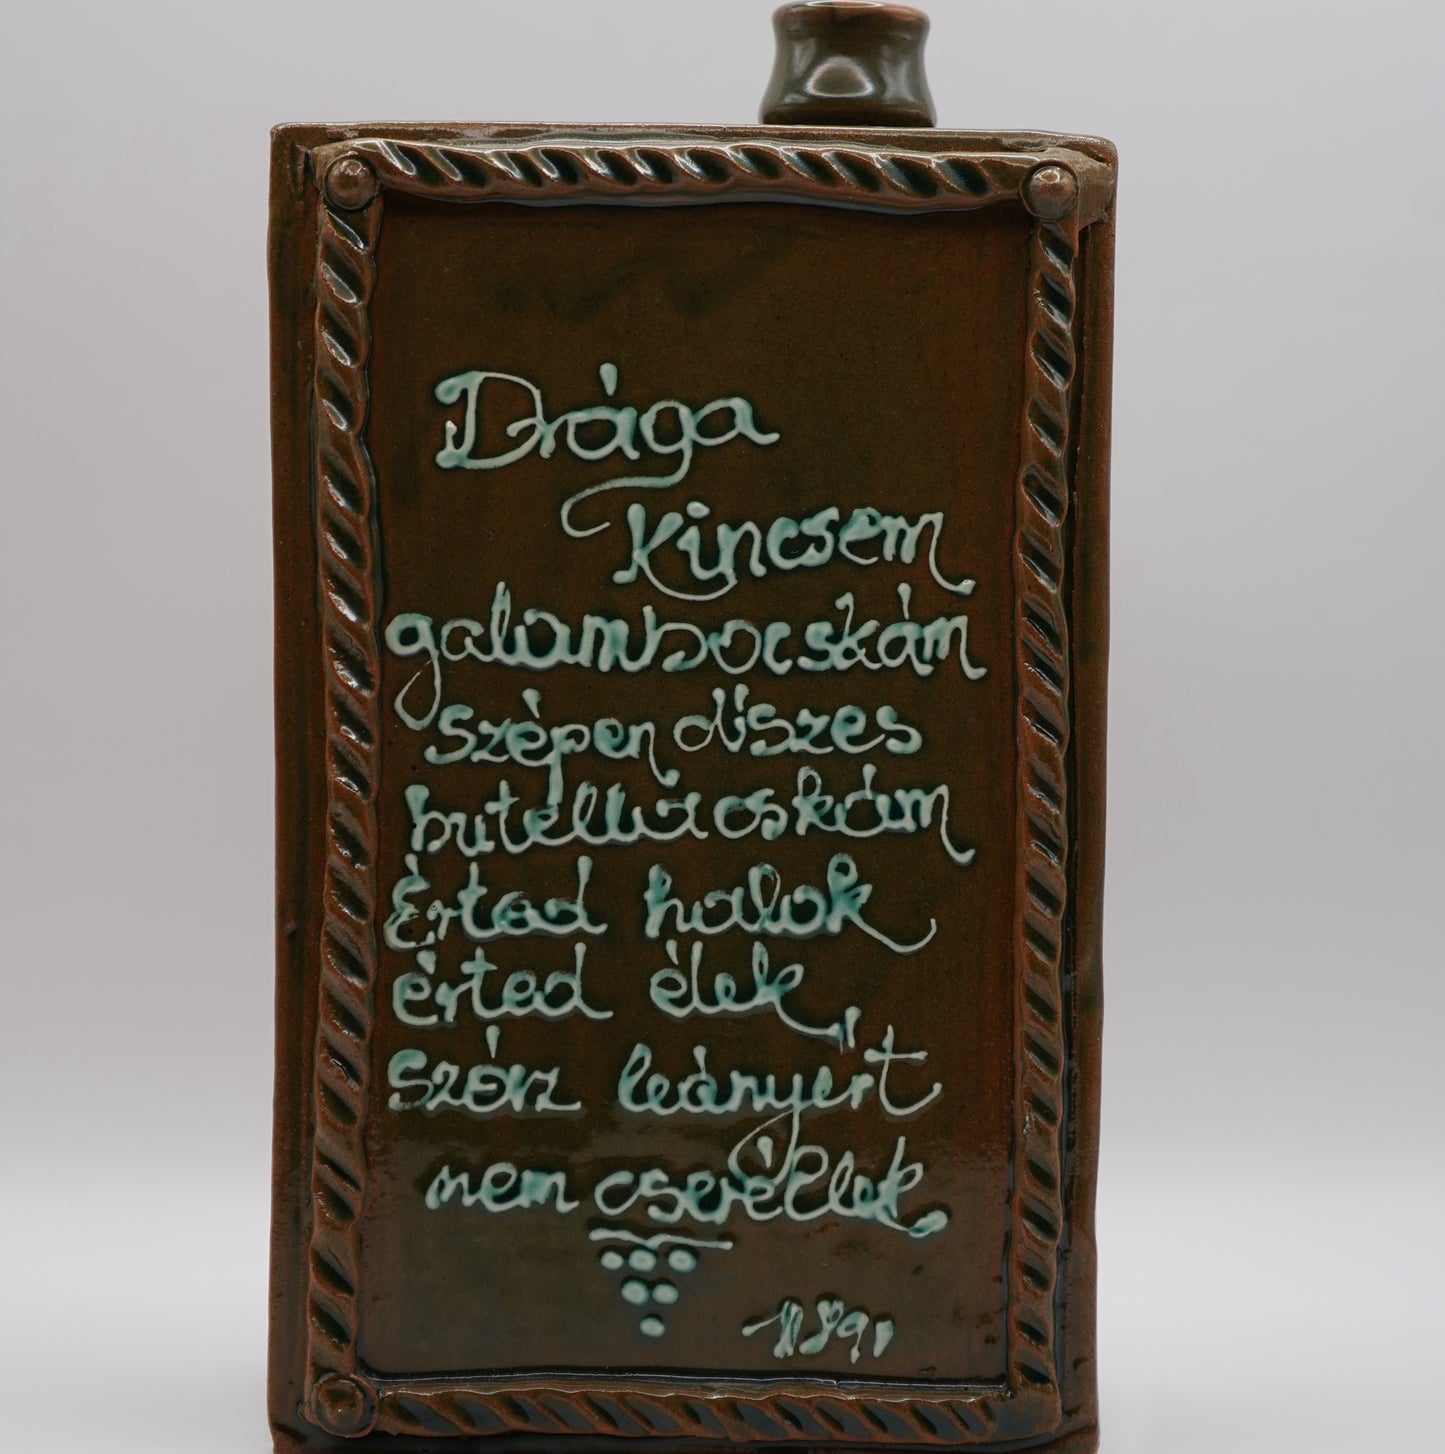 Drága
kincsem
galambocskám
szépen őszes
butelliacskám
Érted halok
érted élek,
száz leányért
nem cseréllek
1891